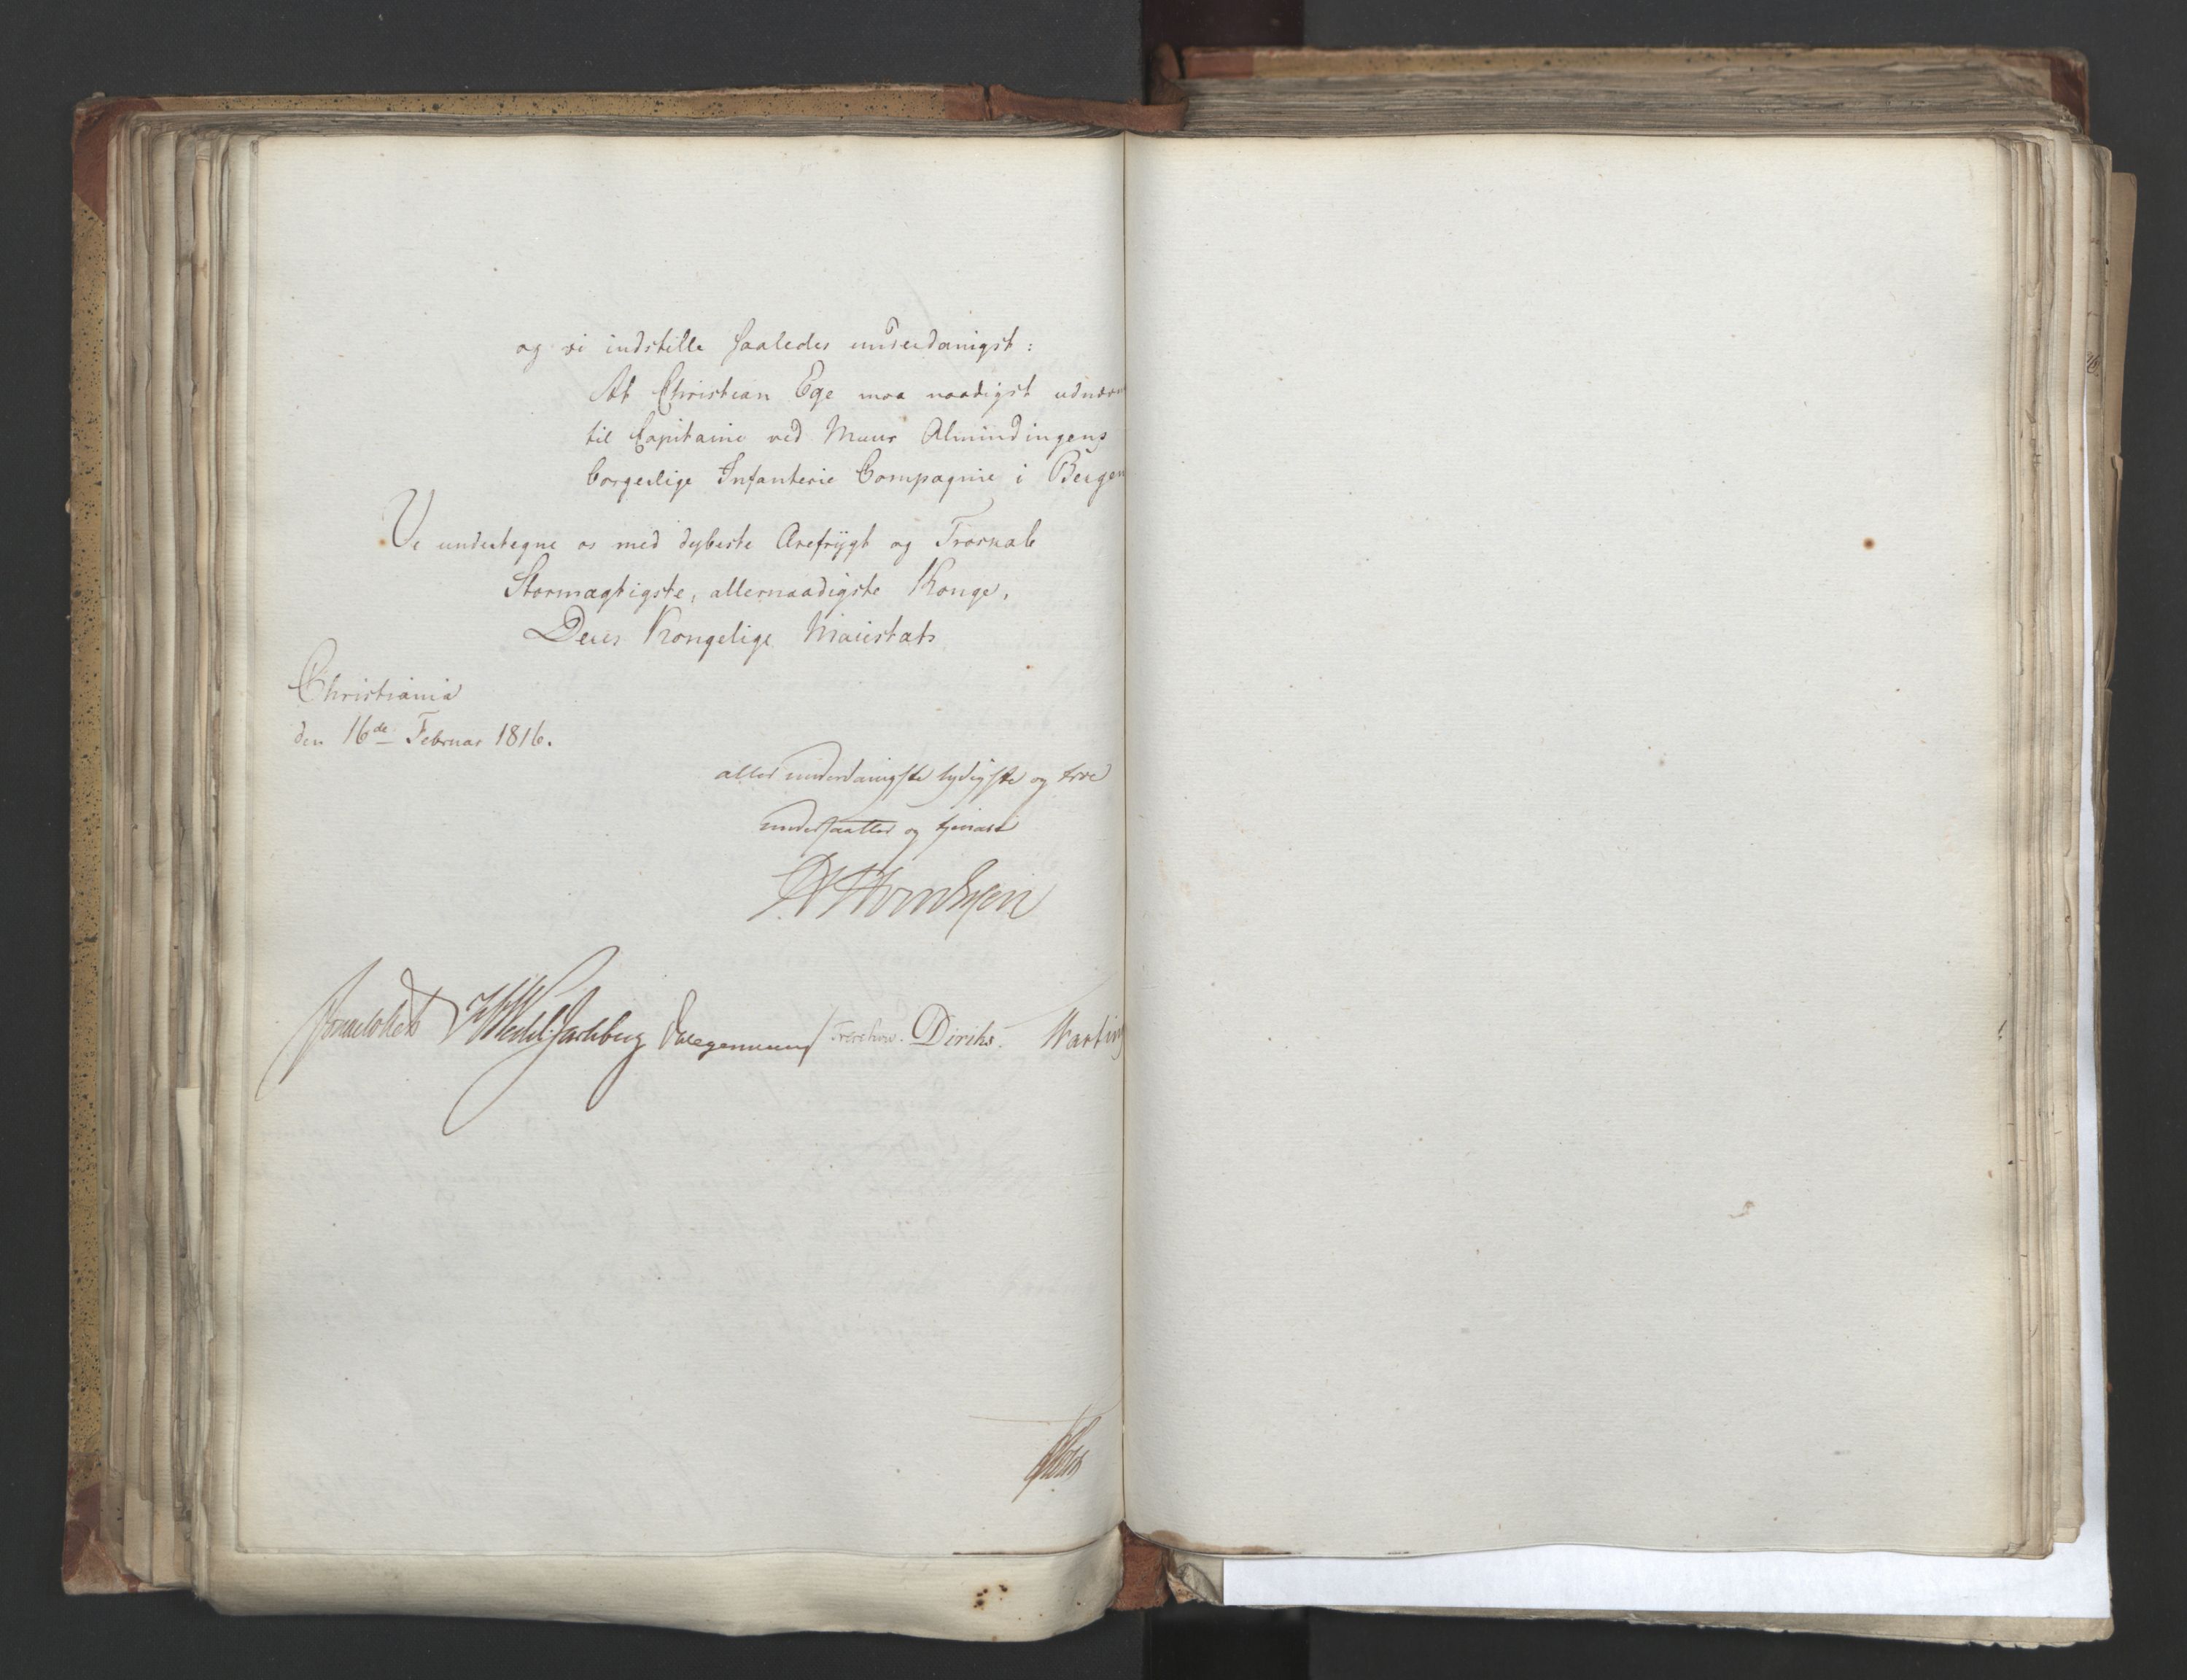 og vi indstille saaledes underdanigst:
At Christian Ege maa naadigst udnævn
til Capitaine ved Muur Almindingens
borgerlige Infanterie Compagnie i Bergen
Vi undertegne os med dybeste Ærefrygt og Troskab
Stormægtigste, allernaadigste Konge,
Deres Kongelige Maiestæts
Christiania
den 16de Februar 1816.
aller underdanigste lydigste og troe
undersaatter og tjenere
Sommerhielm HWedelJarlsberg Treschow. Diriks.